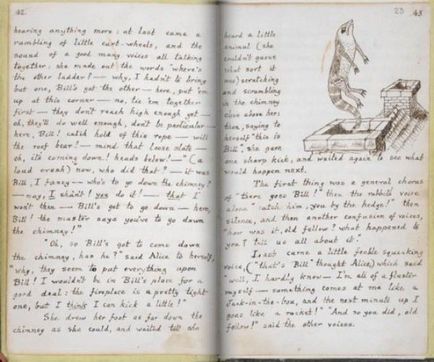 42.
hearing anything more: at last came a
rumbling of little cart-wheels, and the
sound of a good many voices all talking
together: she made out the words "where's
the other ladder? — why, I hadn't to bring
but one, Bill's got the other — here, put 'em
up at this corner — no, tie 'em together
first — they don't reach high enough yet —
oh, they'll do well enough, don't be particular —
here, Bill! catch hold of this rope — will
the roof bear? — mind that loose slate —
oh, it's coming down! heads below! —" (a
loud crash) "now, who did that? — it was
Bill, I fancy — who's to go down the chimney?
— nay, I shan't! you do it! — that I
won't then — Bill's got to go down — here,
Bill! the master says you've to go down
the chimney!"
"Oh, so Bill's got to come down
the chimney, has he?" said Alice to herself,
"why, they seem to put everything upon
Bill! I wouldn't be in Bill's place for a
good deal: the fireplace is a pretty tight
one, but I think I can kick a little!"
She drew her foot as far down the
chimney as she could, and waited till she
23
43
heard a little
animal (she
couldn't guess
what sort it
was) scratching
and scrambling
in the chimney
close above her:
then, saying to
herself "this is
Bill", she gave
one sharp kick, and waited again to see what
would happen next.
The first thing was a general chorus
of "there goes Bill!" then the rabbit's voice
alone "catch him, you by the hedge!" then
silence, and then another confusion of voices,
"how was it, old fellow? what happened to
you? tell us all about it."
Last came a little feeble squeaking
voice, ("that's Bill" thought Alice,) which said
"well, I hardly know — I'm all of a fluster
myself — something comes at me like a
Jack-in-the-box, and the next minute up I
goes like a rocket!" "And so you did, old
fellow!" said the other voices.